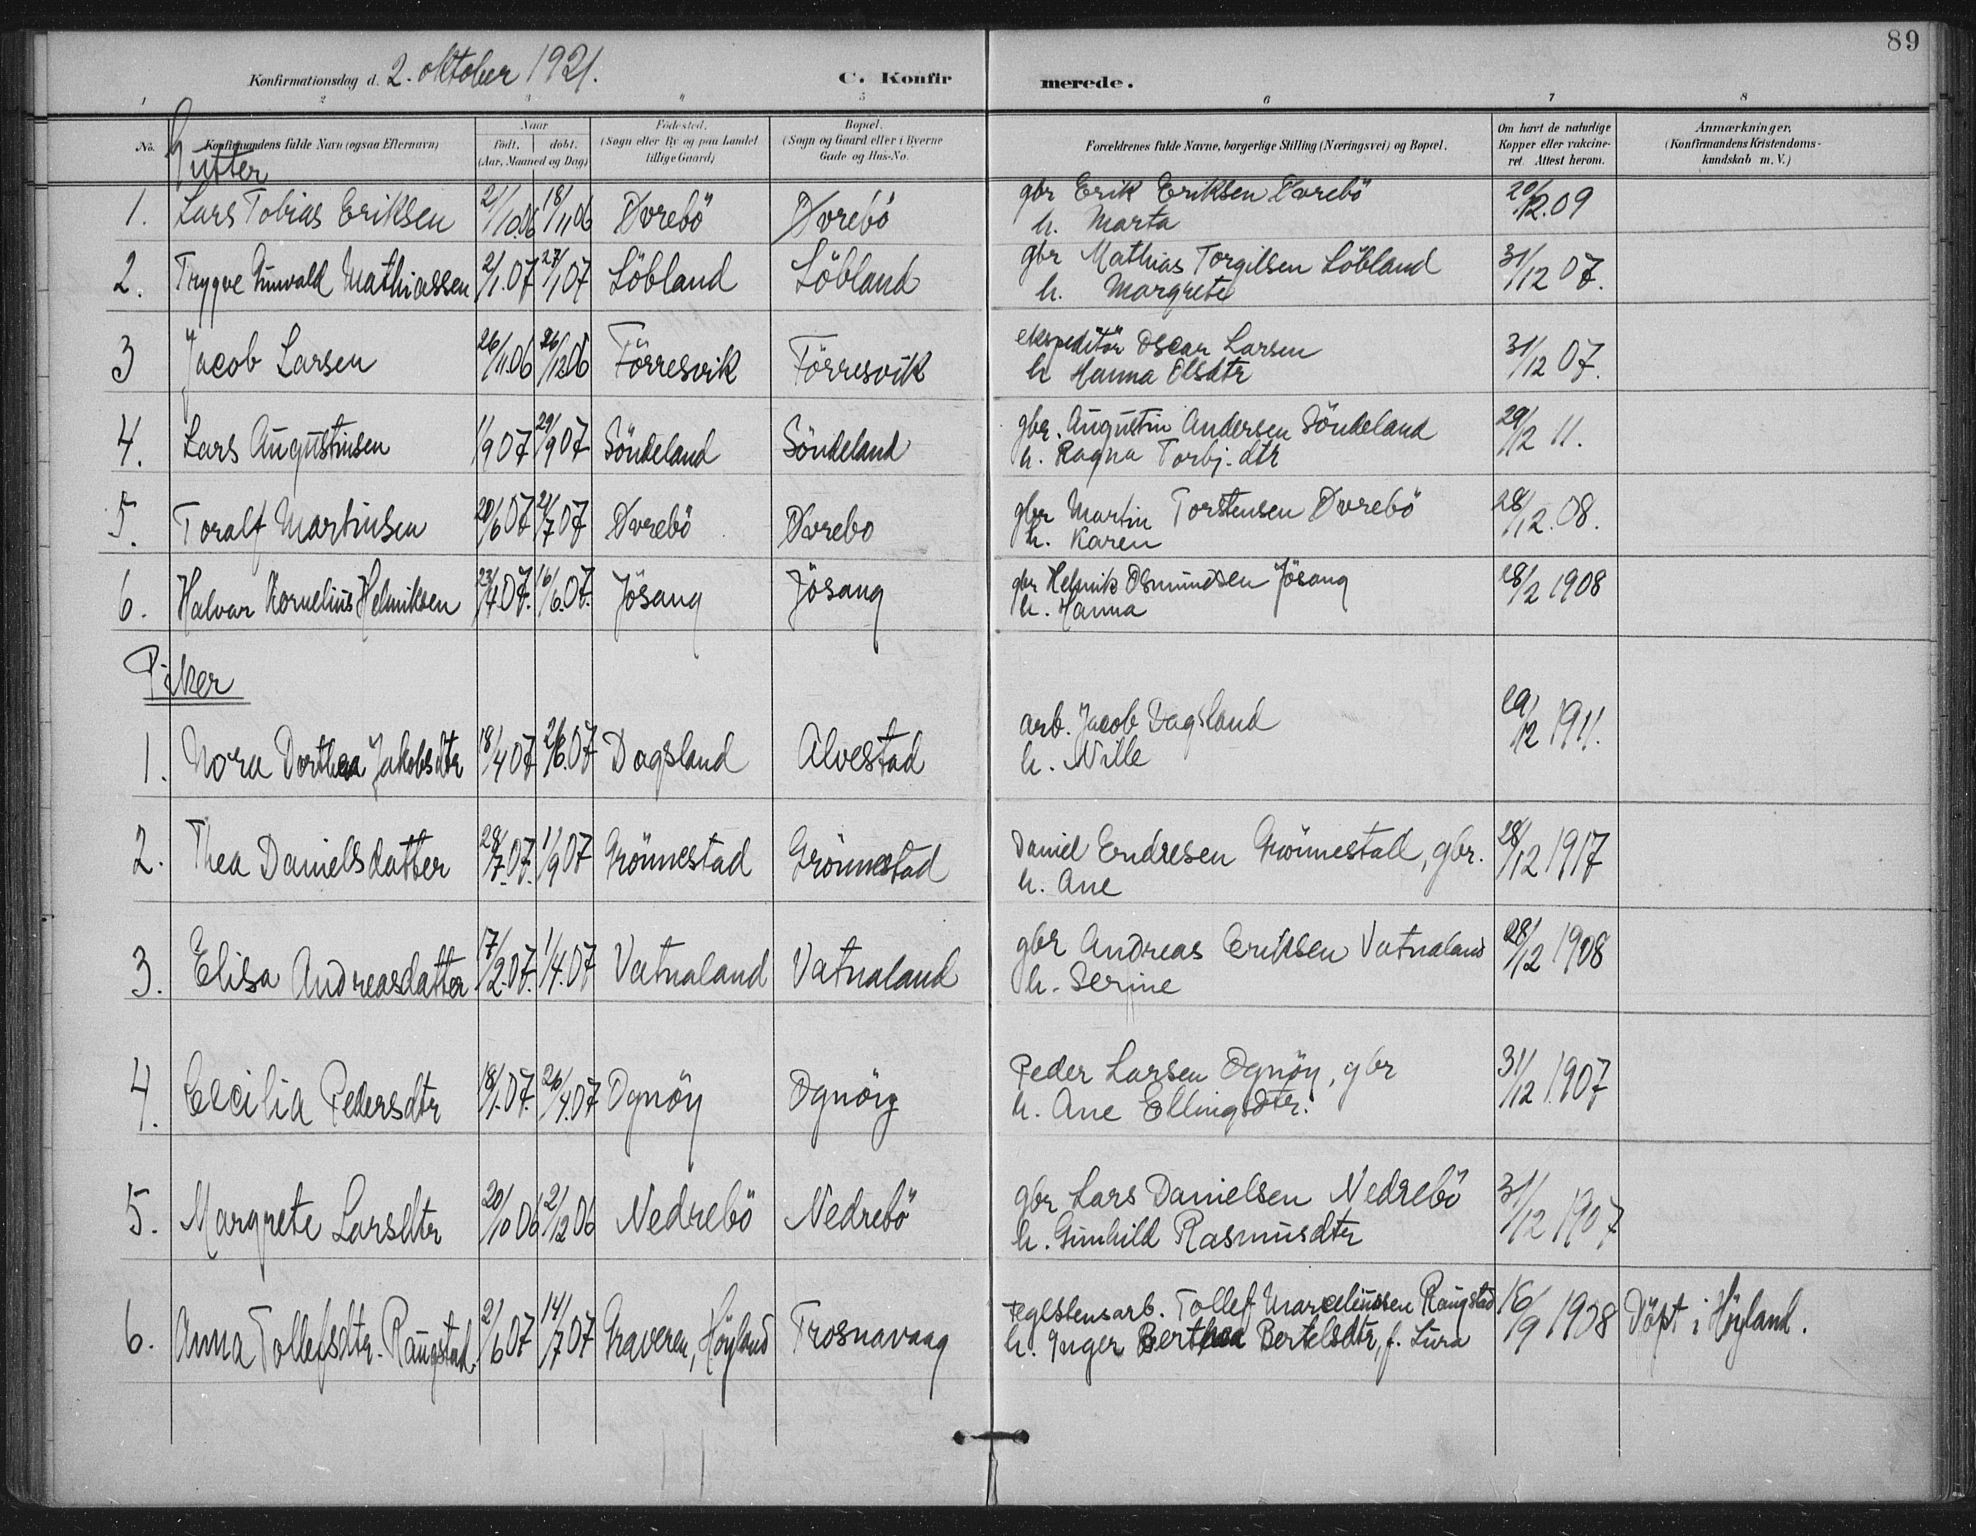 89
Konfirmationsdag d. 2. oktober 1921. C. Konfirmerede.
1 2 3 4 5 6 7 8
No. Konfirmandens fulde Navn (ogsaa Efternavn) Naar født, døbt. (Aar, Maaned og Dag) Fødested. (Sogn eller By og paa Landet tillige Gaard) Bopæl. (Sogn og Gaard eller i Byerne Gade og Hus-No. Forældrenes fulde Navne, borgerlige Stilling (Næringsvei) og Bopæl. Om havt de naturlige Kopper eller vakcineret. Attest herom. Anmærkninger. (Konfirmandens Kristendomskundskab m. V.)
Gutter
1. Lars Tobias Eriksen 21/10.06 18/11 06 Dvrebö Dvrebö gbr Erik Eriksen Dvrebö 20/12.09
h. Marta
2. Trygve Gunvald Mathiassen 2/1.07 27/1 07 Löbland Löbland gbr Mathias Torgilsen Löbland 31/12 07.
h. Margrete
3 Jacob Larsen 26/11.06 26/12.06 Förresvik Förresvik ekspeditör Oscar Larsen 31/12 07.
h Hanna Olsdtr
4. Lars Augustinsen 1/9 07 29/9 07 Söndeland Söndeland gbr. Augustin Andersen Söndeland 29/12 11.
h. Ragna Torbj.dtr
5. Toralf Martinsen 20/6 07 21/7 07 Dvrebö Dvrebo gbr Martin Torstensen Dvrebö 28/12.08.
h. Karen
6. Halvar Kornelius Helmiksen 23/4.07. 16/6.07. Jösang Jösang gbr Helmik Osmundsen Jösang 28/2 1908
h. Hanna
Piker
1. Nora Dorthea Jakobsdtr 18/4 07 2/6.07 Dagsland Alvestad arb. Jacob Dagsland 29/12 1911.
h. Nille
2. Thea Danielsdatter 28/7.07. 1/9 07 Grönnestad Grönnestad Daniel Endresen Grönnestad, gbr. 28/12 1917
h. Ane
3. Elisa Andreasdatter 17/2.07. 1/4.07 Vatnaland Vatnaland gbr Andreas Eriksen Vatnaland 28/12 1908
h. Serine
4. Cecilia Pedersdtr 18/1.07. 26/4.07 Ognöy Ognöy Peder Larsen Ognöy, gbr 31/12 1907
h. Ane Ellingsdtr.
5. Margrete Larsdtr 20/10 06 2/12 06 Nedrebö Nedrebö gbr Lars Danielsen Nedrebö 31/12 1907
h. Gunhild Rasmusdtr
6. Anna Tollefsdtr. Raugstad 2/6 07 14/7 07 Graveren, Höyland Trosnavaag teglstensarb. Tollef Marceliussen Raugstad 16/9 1908 Döpt i Höyland.
h. Inger Berthea Bertelsdtr, f. Lura